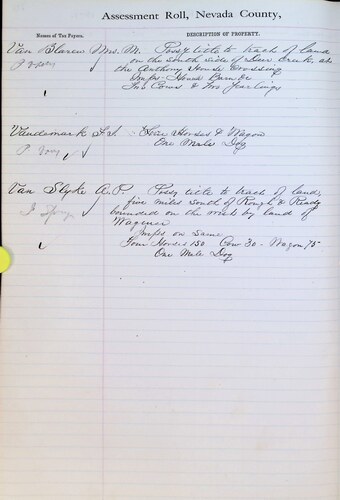 Assessment Roll, Nevada County,
Names of Tax Payers.
DESCRIPTION OF PROPERTY.
Van Blarcom Mrs. M. Possy title to tract of land
on the South side of Deer Creek, at
the Anthony House Crossing
Imps- House Barn &c
Two Cows & two Yearlings
Vandemark Four Horses & Wagon
One Male Dog
Van Slyke A. P. Possy title to tract of land,
five miles South of Rough & Ready
bounded on the west by land of
Wagner
Imps on same
Four Horses 150 Cow 30 - Wagon 75
One Male Dog